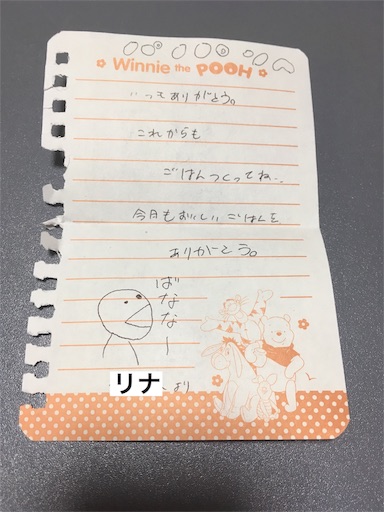 Winnie the POOH
いってありがとう。
これからも
ごはんつくってね..
今日もおいしいごはんを
ありがとう。
ばななー
リナ
より